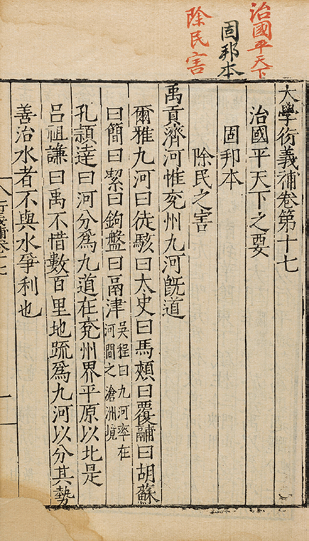 治國平天下
固邦本
除民害
大學衍義補卷第十七
治國平天下之要
固邦本
除民之害
禹貢濟河惟兖州九河旣道
爾雅九河曰徒駭曰太史曰馬頰曰覆鬴曰胡蘇
曰簡曰絜曰鉤盤曰鬲津吳程曰九河率在
河間之滄州境
孔頴達曰河分爲九道在兖州界平原以北是
吕祖謙曰禹不惜數百里地疏爲九河以分其勢
善治水者不與水爭利也